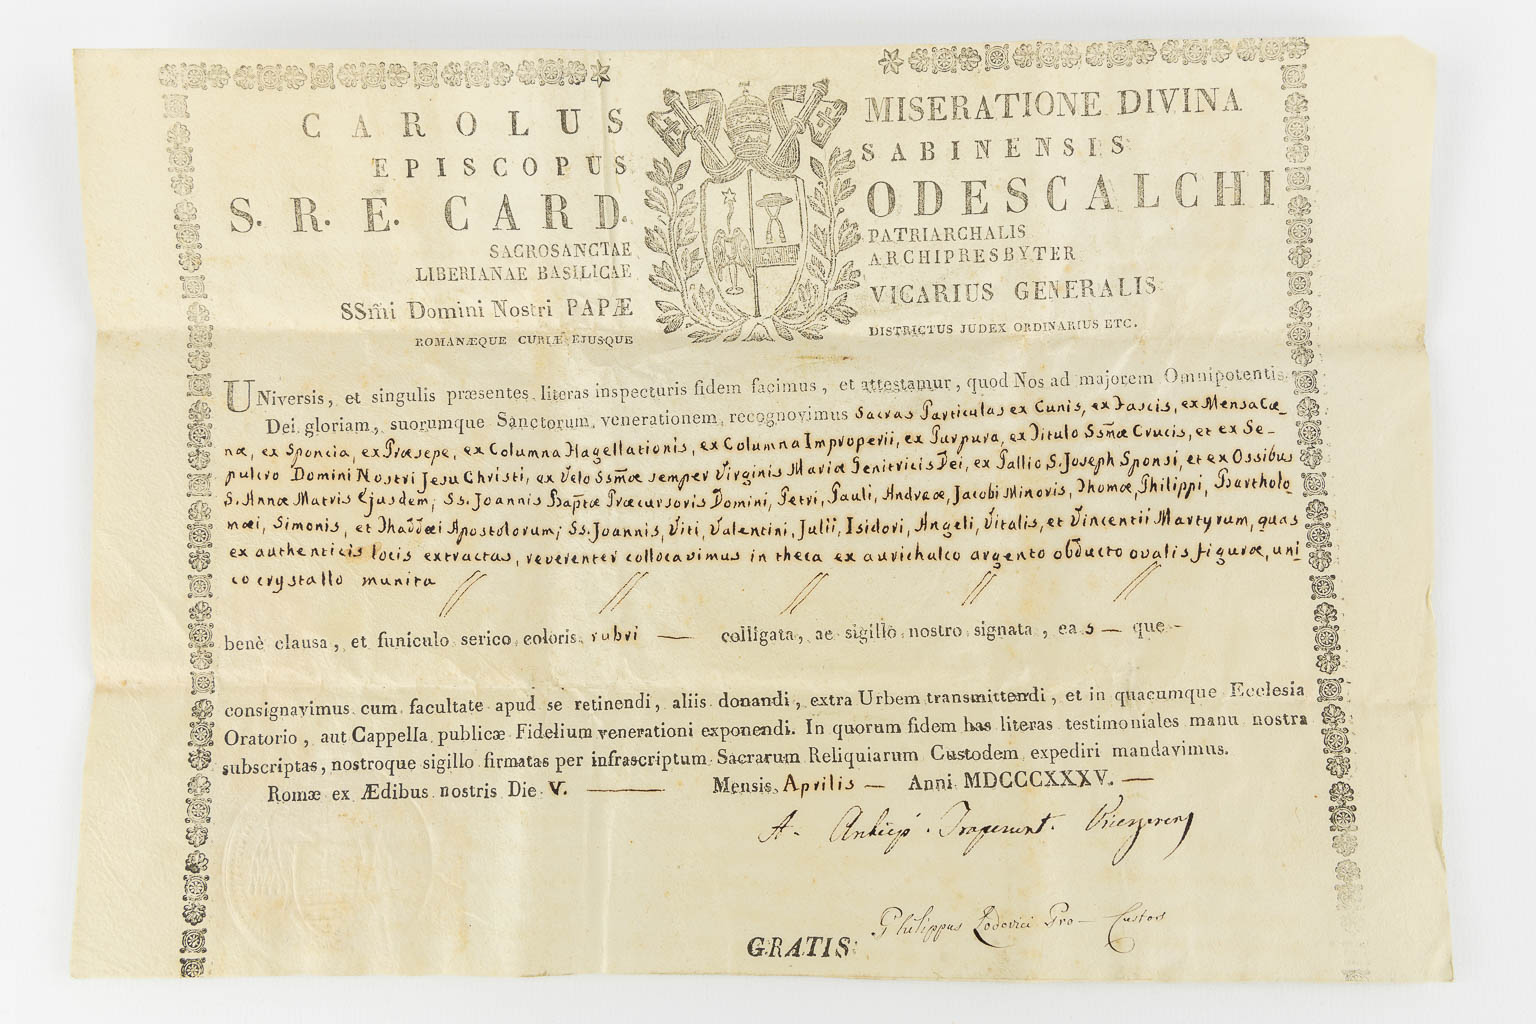 CAROLUS MISERATIONE DIVINA
EPISCOPUS SABINENSIS
S. R. E. CARD. ODESCALCHI
SACROSANCTAE PATRIARCHALIS
LIBERIANAE BASILICAE ARCHIPRESBYTER
SSm̃i Domini Nostri PAPÆ VICARIUS GENERALIS
ROMANÆQUE CURIÆ EJUSQUE DISTRICTUS JUDEX ORDINARIUS ETC.
UNiversis, et singulis præsentes literas inspecturis fidem facimus, et attestamur, quod Nos ad majorem Omnipotentis
Dei gloriam, suorumque Sanctorum venerationem, recognovimus Sacras Particulas ex Cunis, ex Fascis, ex Mensa Cæ-
næ, ex Sponcia, ex Præsepe, ex Columna Flagellationis, ex Columna Improperii, ex Purpura, ex Titulo Ssm̃æ Crucis, et ex Se-
pulcro Domini Nostri Jesu Christi, ex Velo Ssm̃æ semper Virginis Mariæ Genitricis Dei, ex Pallio S. Joseph Sponsi, et ex Ossibus
S. Annæ Matris Ejusdem; Ss. Joannis Bap̃tæ Præcursoris Domini, Petri, Pauli, Andreæ, Jacobi Minoris, Thomæ, Philippi, Bartholo-
mæi, Simonis, et Thaddæi Apostolorum; Ss. Joannis, Viti, Valentini, Julii, Isidori, Angeli, Vitalis, et Vincentii Martyrum, quas
ex authenticis locis extractas, reverenter collocavimus in theca ex aurichalco argento obducto ovalis figuræ, uni-
co crystallo munita
benè clausa, et funiculo serico coloris rubri — colligata, ac sigillo nostro signata, eas — que —
consignavimus cum facultate apud se retinendi, aliis donandi, extra Urbem transmittendi, et in quacumque Ecclesia
Oratorio, aut Cappella publicæ Fidelium venerationi exponendi. In quorum fidem has literas testimoniales manu nostra
subscriptas, nostroque sigillo firmatas per infrascriptum Sacrarum Reliquiarum Custodem expediri mandavimus.
Romæ ex Ædibus nostris Die V. — Mensis Aprilis — Anni MDCCCXXXV. —
Philippus Lodovici Pro-Custos
GRATIS